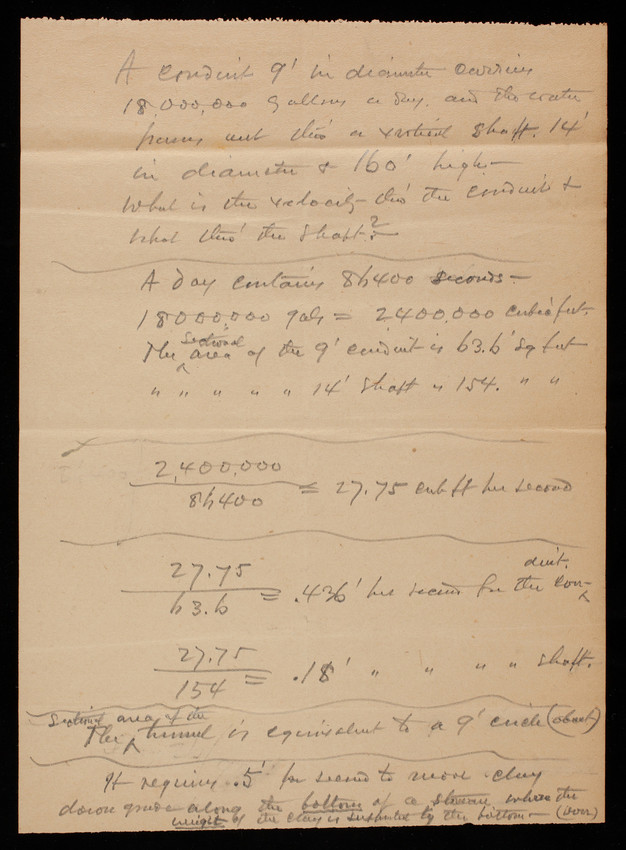 A conduit 9' in diameter carries
18,000,000 gallons a day, and the water
passes out thro a vertical shaft. 14'
in diameter & 160' high-
What is the velocity thro' the conduit &
what thro' the shaft?
A day contains 86400 seconds-
18000000 gals = 2400,000 cubic feet.
The sectional area of the 9' conduit is 63.6' sq feet
" " " " " 14' shaft " 154. " "
2,400,000
86400 = 27.75 cub ft per second
27.75
63.6 = .436' per second for the conduit.
27.75
154 = .18' " " " " shaft.
The sectional area of the tunnel is equivalent to a 9' circle (about)
It requires .5' per second to move clay
down grade along the bottom of a stream where the
weight of the clay is supported by the bottom- (over)